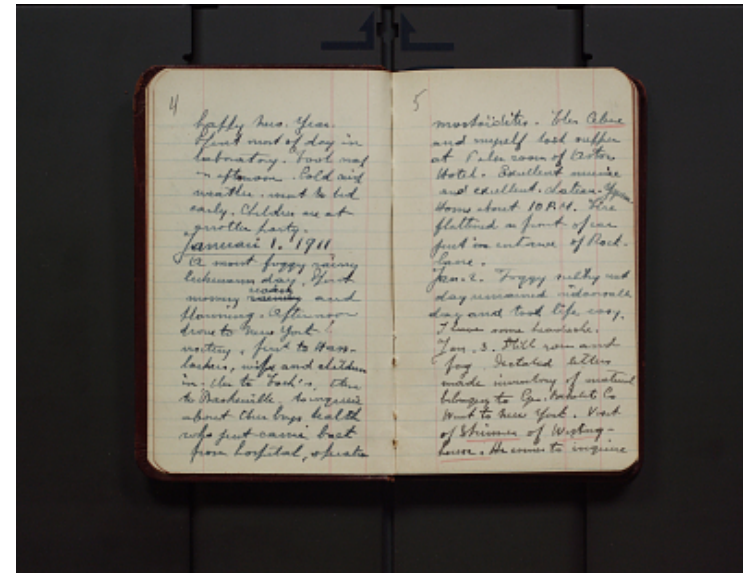 4
happy New Year.
Spent most of day in
laboratory. Took nap
in afternoon. Cold and
weather. Went to bed
early. Children are at
another party.
Januari 1. 1911
A most foggy rainy
day. Spent
morning reading and
planning. Afternoon
drove to New York
first to Has-
lachers, wife and children
in. Then to Koch's, then
to Baskerville, to inquire
about their boys health
who just came back
from hospital, operation
5
mastoiditis. Then Celine
and myself took supper
at Palm room of Astor
Hotel. Excellent music
and excellent Chateau
Home about 10 P.M. Tire
flattened in front of car
just in entrance of Rock
Lane.
Jan. 2. Foggy sultry wet
day remained indoors all
day and took life easy.
I have some headache.
Jan. 3. Still rain and
fog. Dictated letters
made inventory of material
belonging to Gen. Bakelite Co
Went to New York. Visit
of Skinner of Westing-
house. He comes to inquire